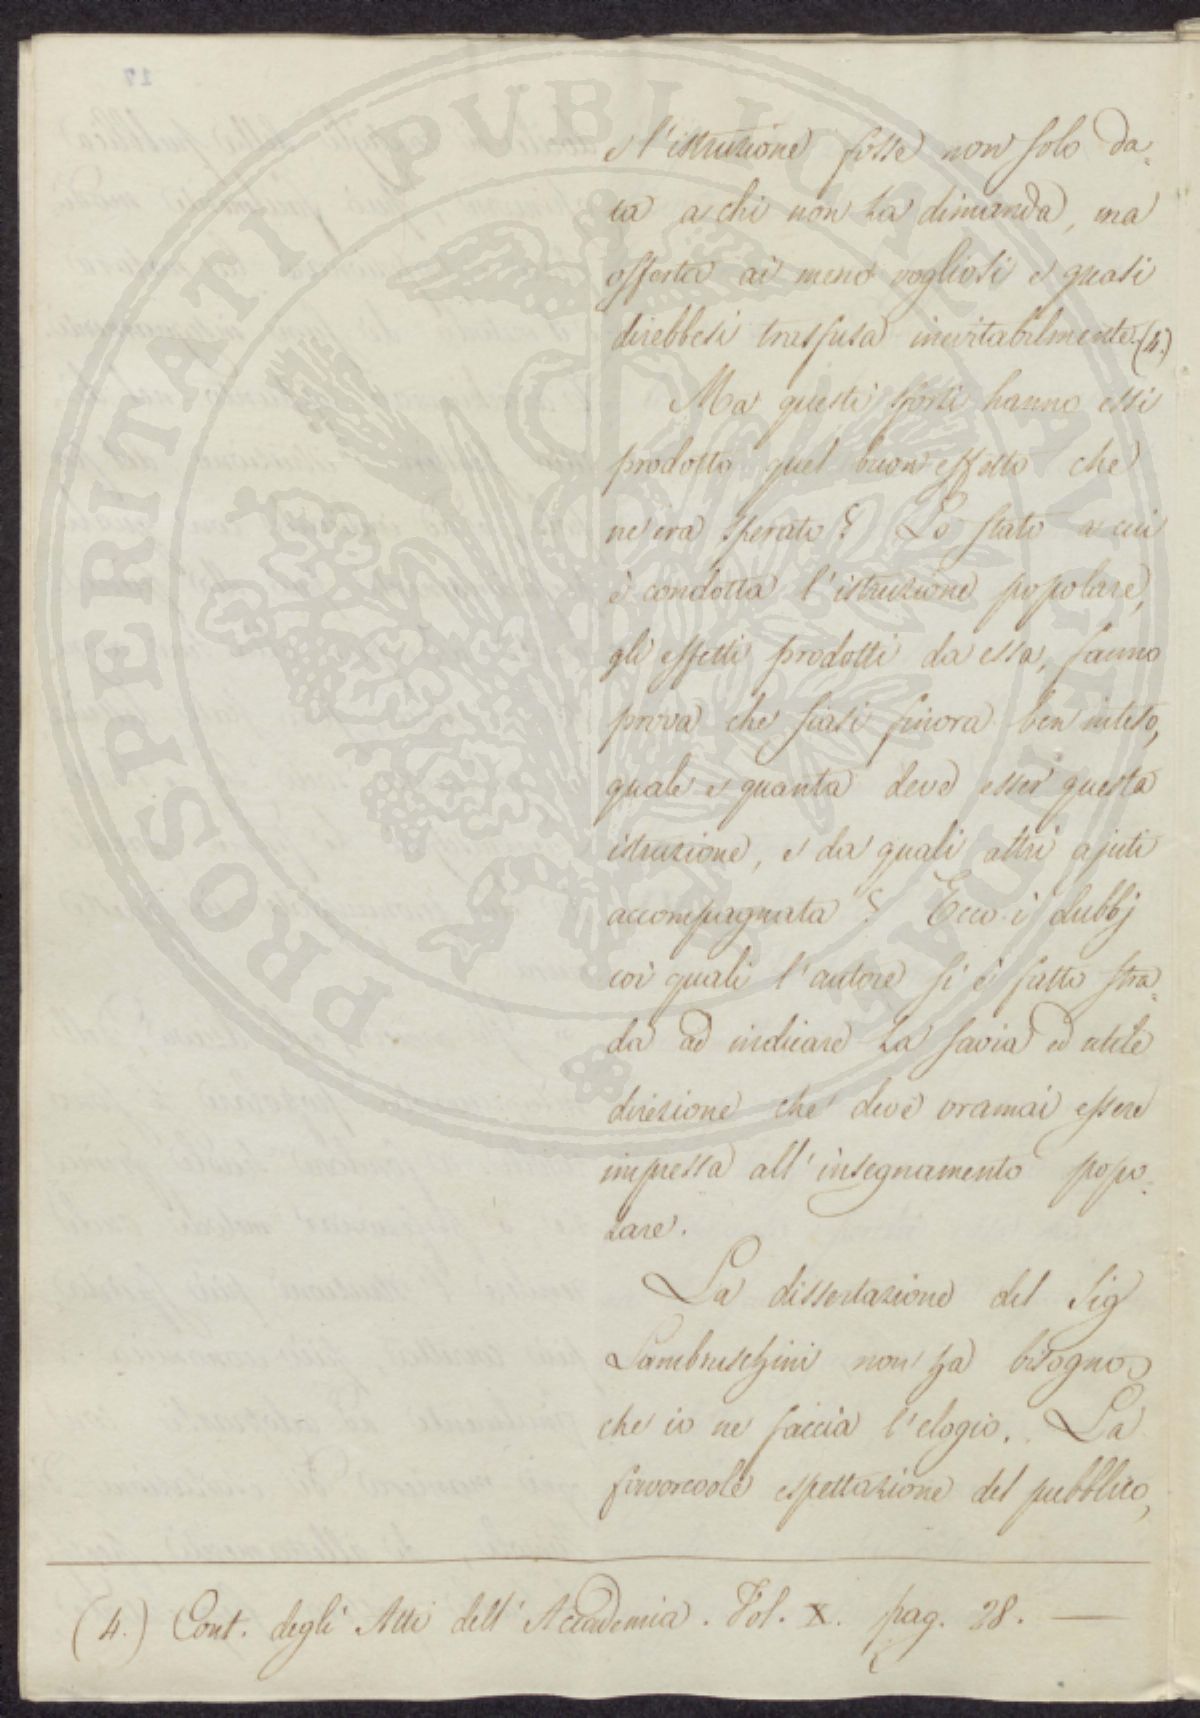 e l'istruzione fosse non solo da-
ta a chi non la dimanda, ma
offerta ai meno vogliosi e quasi
direbbesi trasfusa inevitabilmente. (4.)
Ma questi sforzi hanno essi
prodotto quel buon effetto che
ne era sperato? Lo stato a cui
è condotta l'istruzione popolare,
gli effetti prodotti da essa, fanno
prova che siasi finora ben inteso,
quale e quanta deve esser questa
istruzione, e da quali altri ajuti
accompagnata? Ecco i dubbj
coi quali l'autore si è fatto stra-
da ad indicare la savia ed utile
direzione che deve oramai essere
impressa all'insegnamento popo-
lare.
La dissertazione del Sig
Lambruschini non ha bisogno
che io ne faccia l'elogio. La
favorevole espettazione del pubblico,
(4.) Cont. degli Atti dell'Accademia. Vol. X. pag. 28. —
PROSPERITATI PUBLICAE AUGENDAE
17